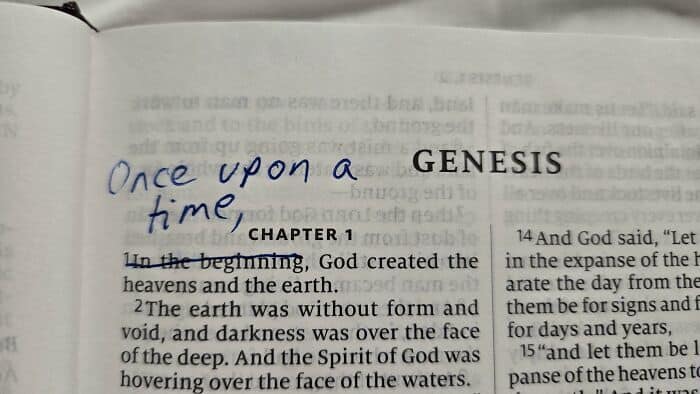 GENESIS
Once upon a
time,
CHAPTER 1
1In the beginning, God created the
heavens and the earth.
2The earth was without form and
void, and darkness was over the face
of the deep. And the Spirit of God was
hovering over the face of the waters.
14 And God said, “Let
in the expanse of the h
arate the day from the
them be for signs and f
for days and years,
15 “and let them be l
panse of the heavens to